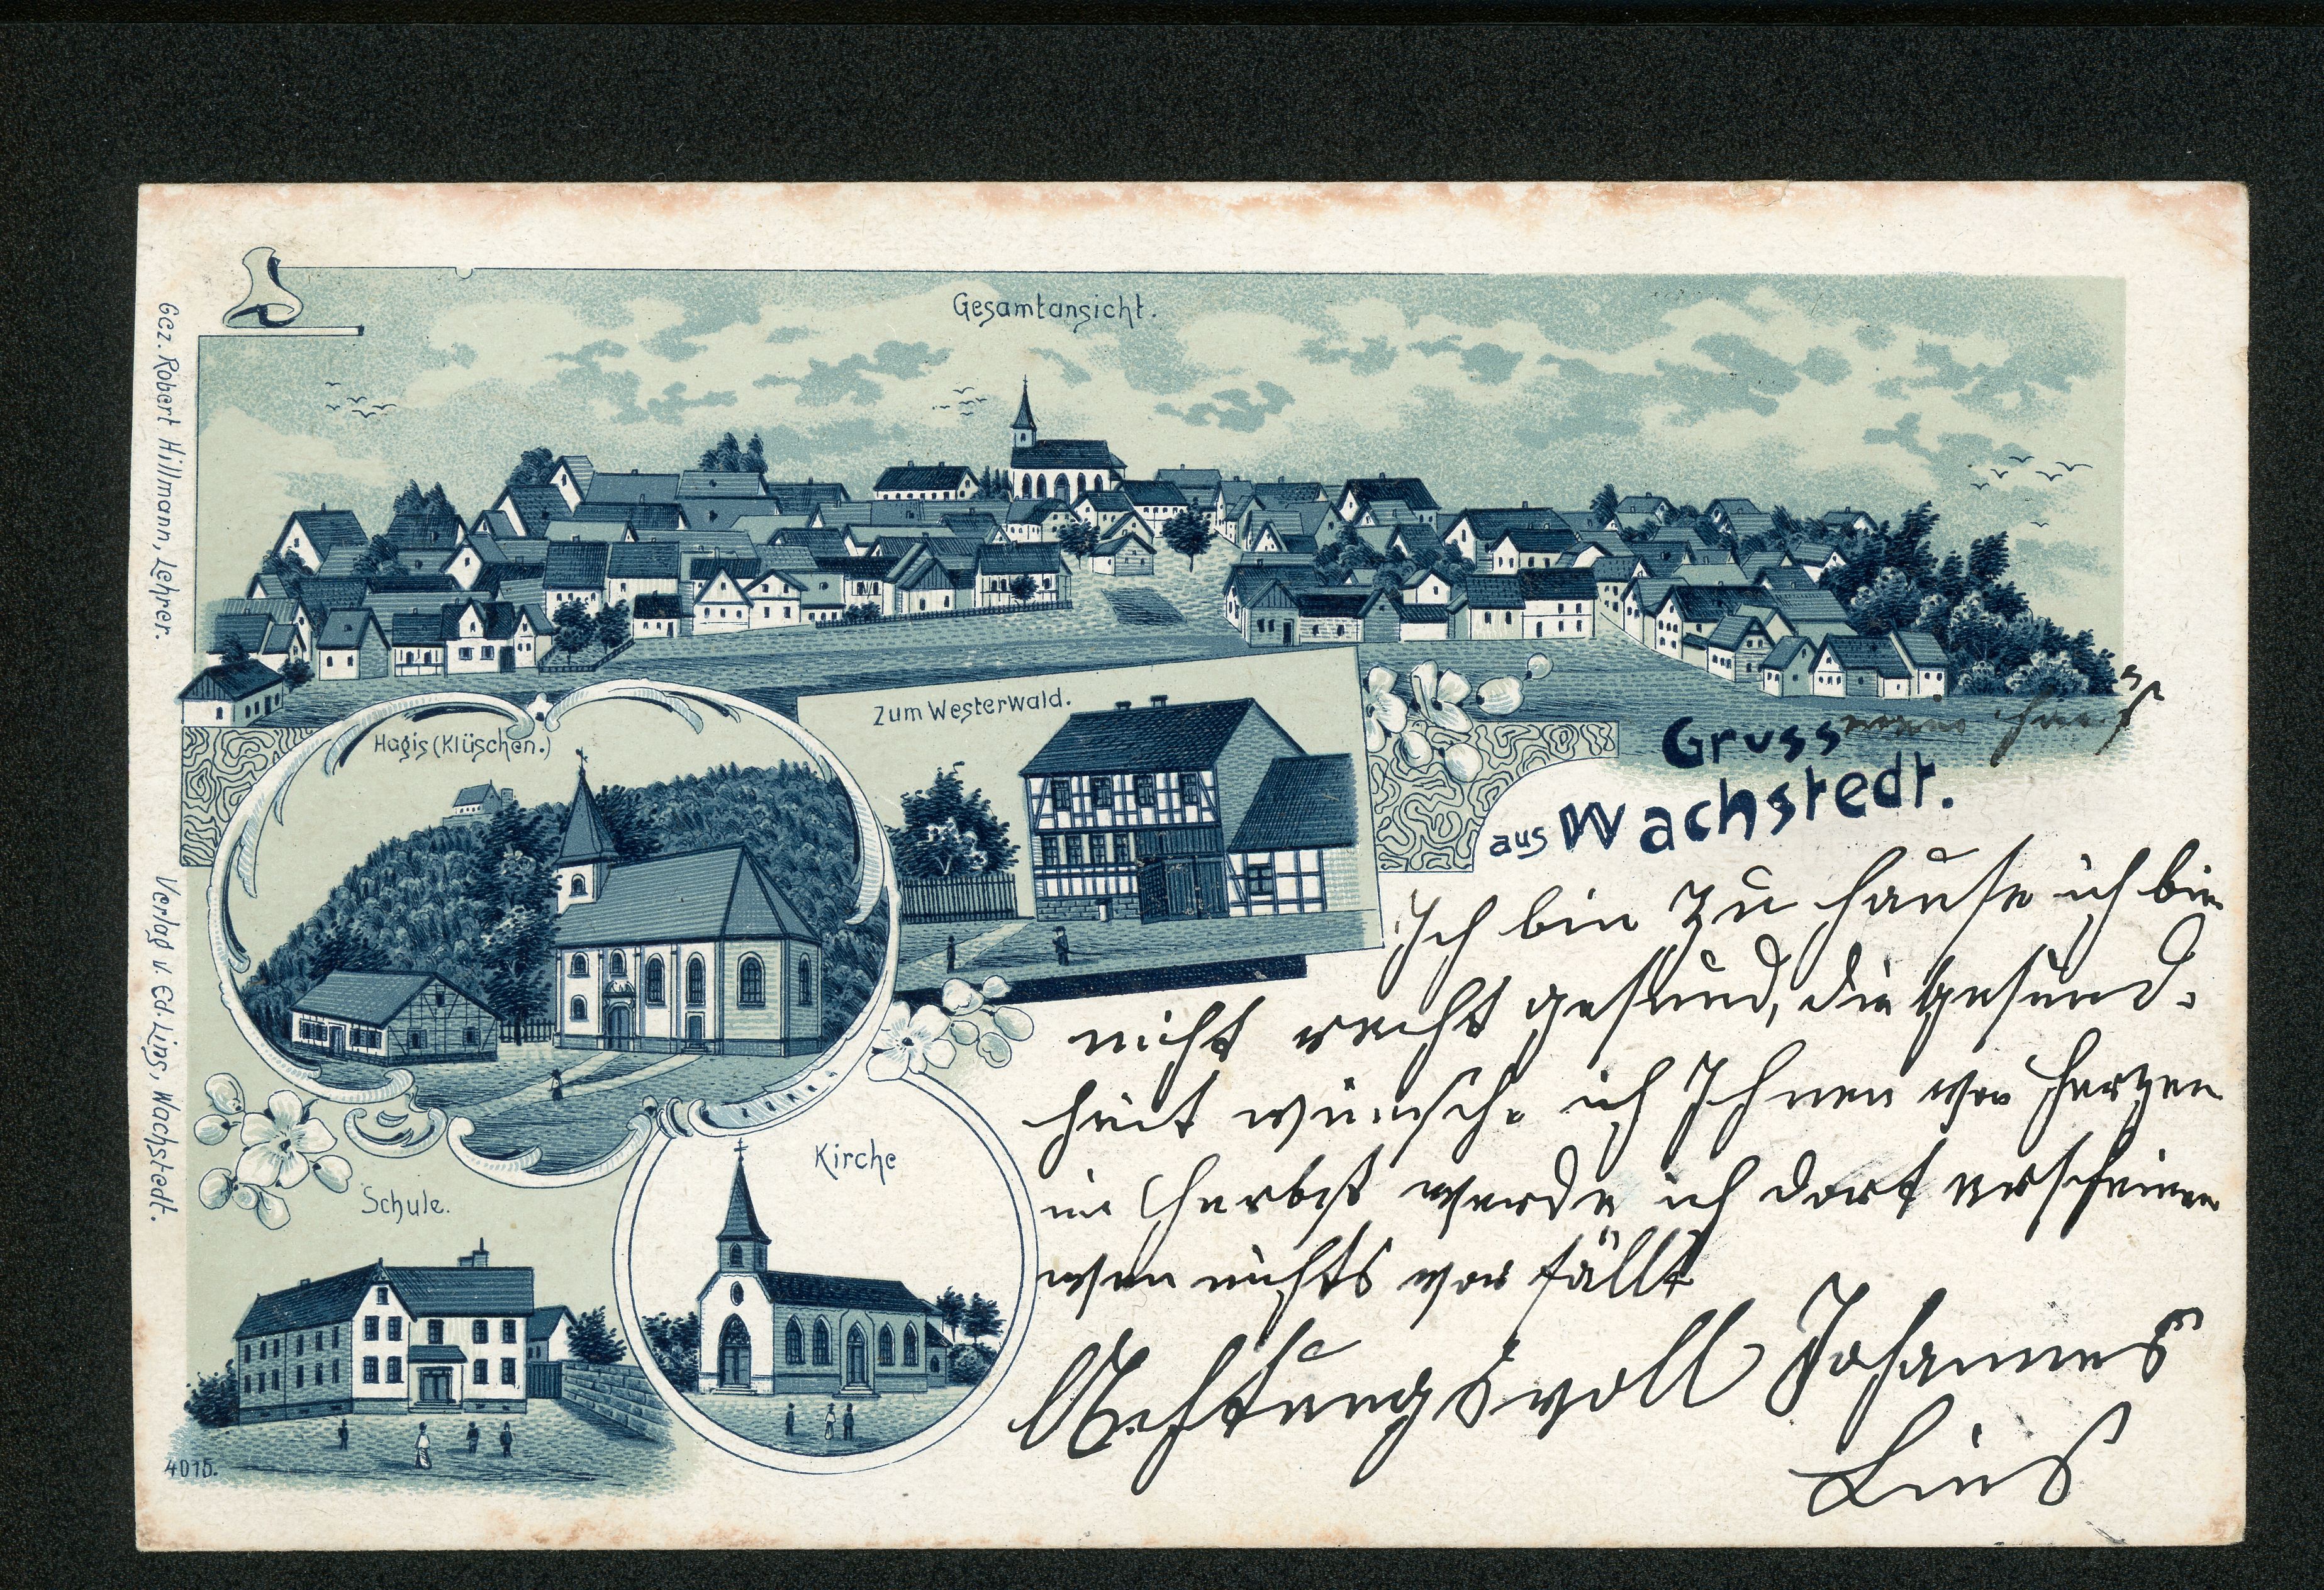 Gesamtansicht.
Gez. Robert Hillmann, Lehrer.
Verlag v. Ed. Lins, Wachstedt.
Hagis (Klüschen.)
Zum Westerwald.
Gruss
mein Haus
aus Wachstedt.
Kirche
Schule.
4015.
Ich bin zu hause ich bin
nicht recht gesund, die gesund-
heit wünsche ich Ihnen von Herzen
im Herbst werde ich dort erscheinen
wen nichts vor fällt
Achtungsvoll Johannes
Lins